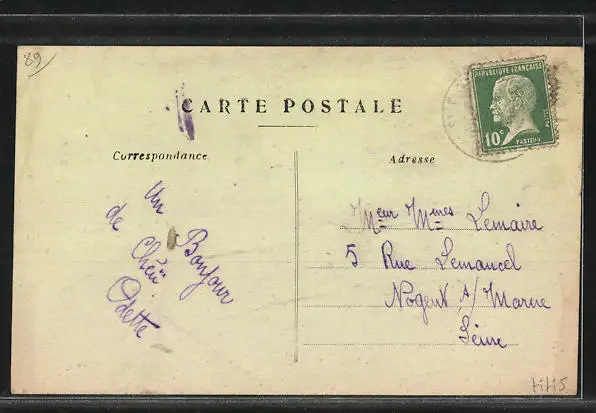 89
CARTE POSTALE
RÉPUBLIQUE FRANÇAISE
10c
PASTEUR
POSTES
Correspondance
Adresse
Un Bonjour
de Chéu
Odette
Meur Mmes Lemaire
5 Rue Lemancel
Nogent s/ Marne
Seine